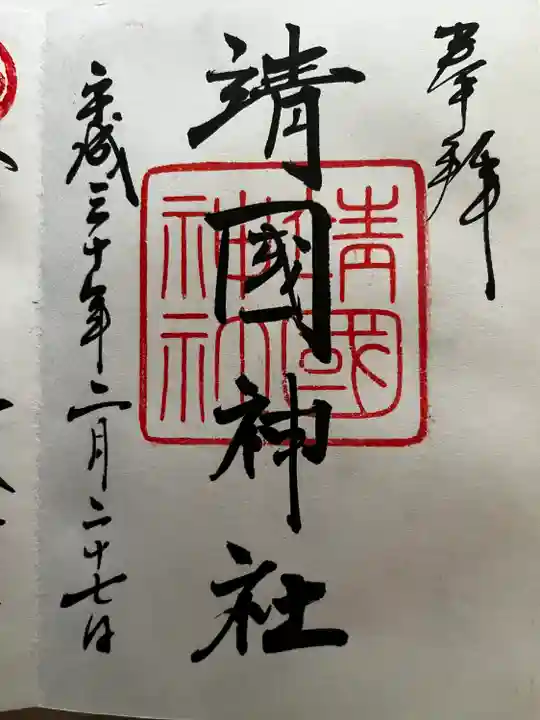 奉拝
靖國神社
靖國
神社
平成三十年二月二十七日